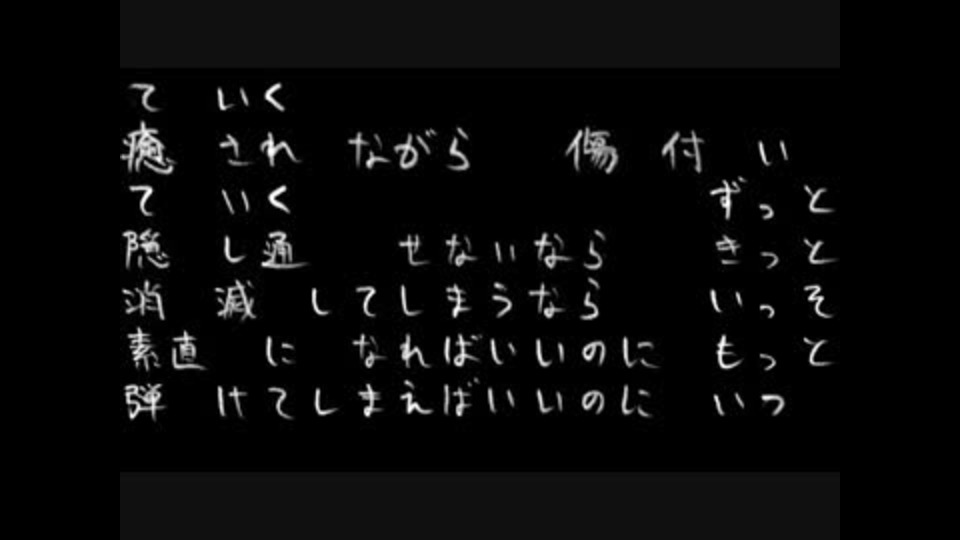 て いく
癒 され ながら 傷 付 い
て いく ずっと
隠 し通 せないなら きっと
消 滅 してしまうなら いっそ
素直 に なればいいのに もっと
弾 けてしまえばいいのに いっ